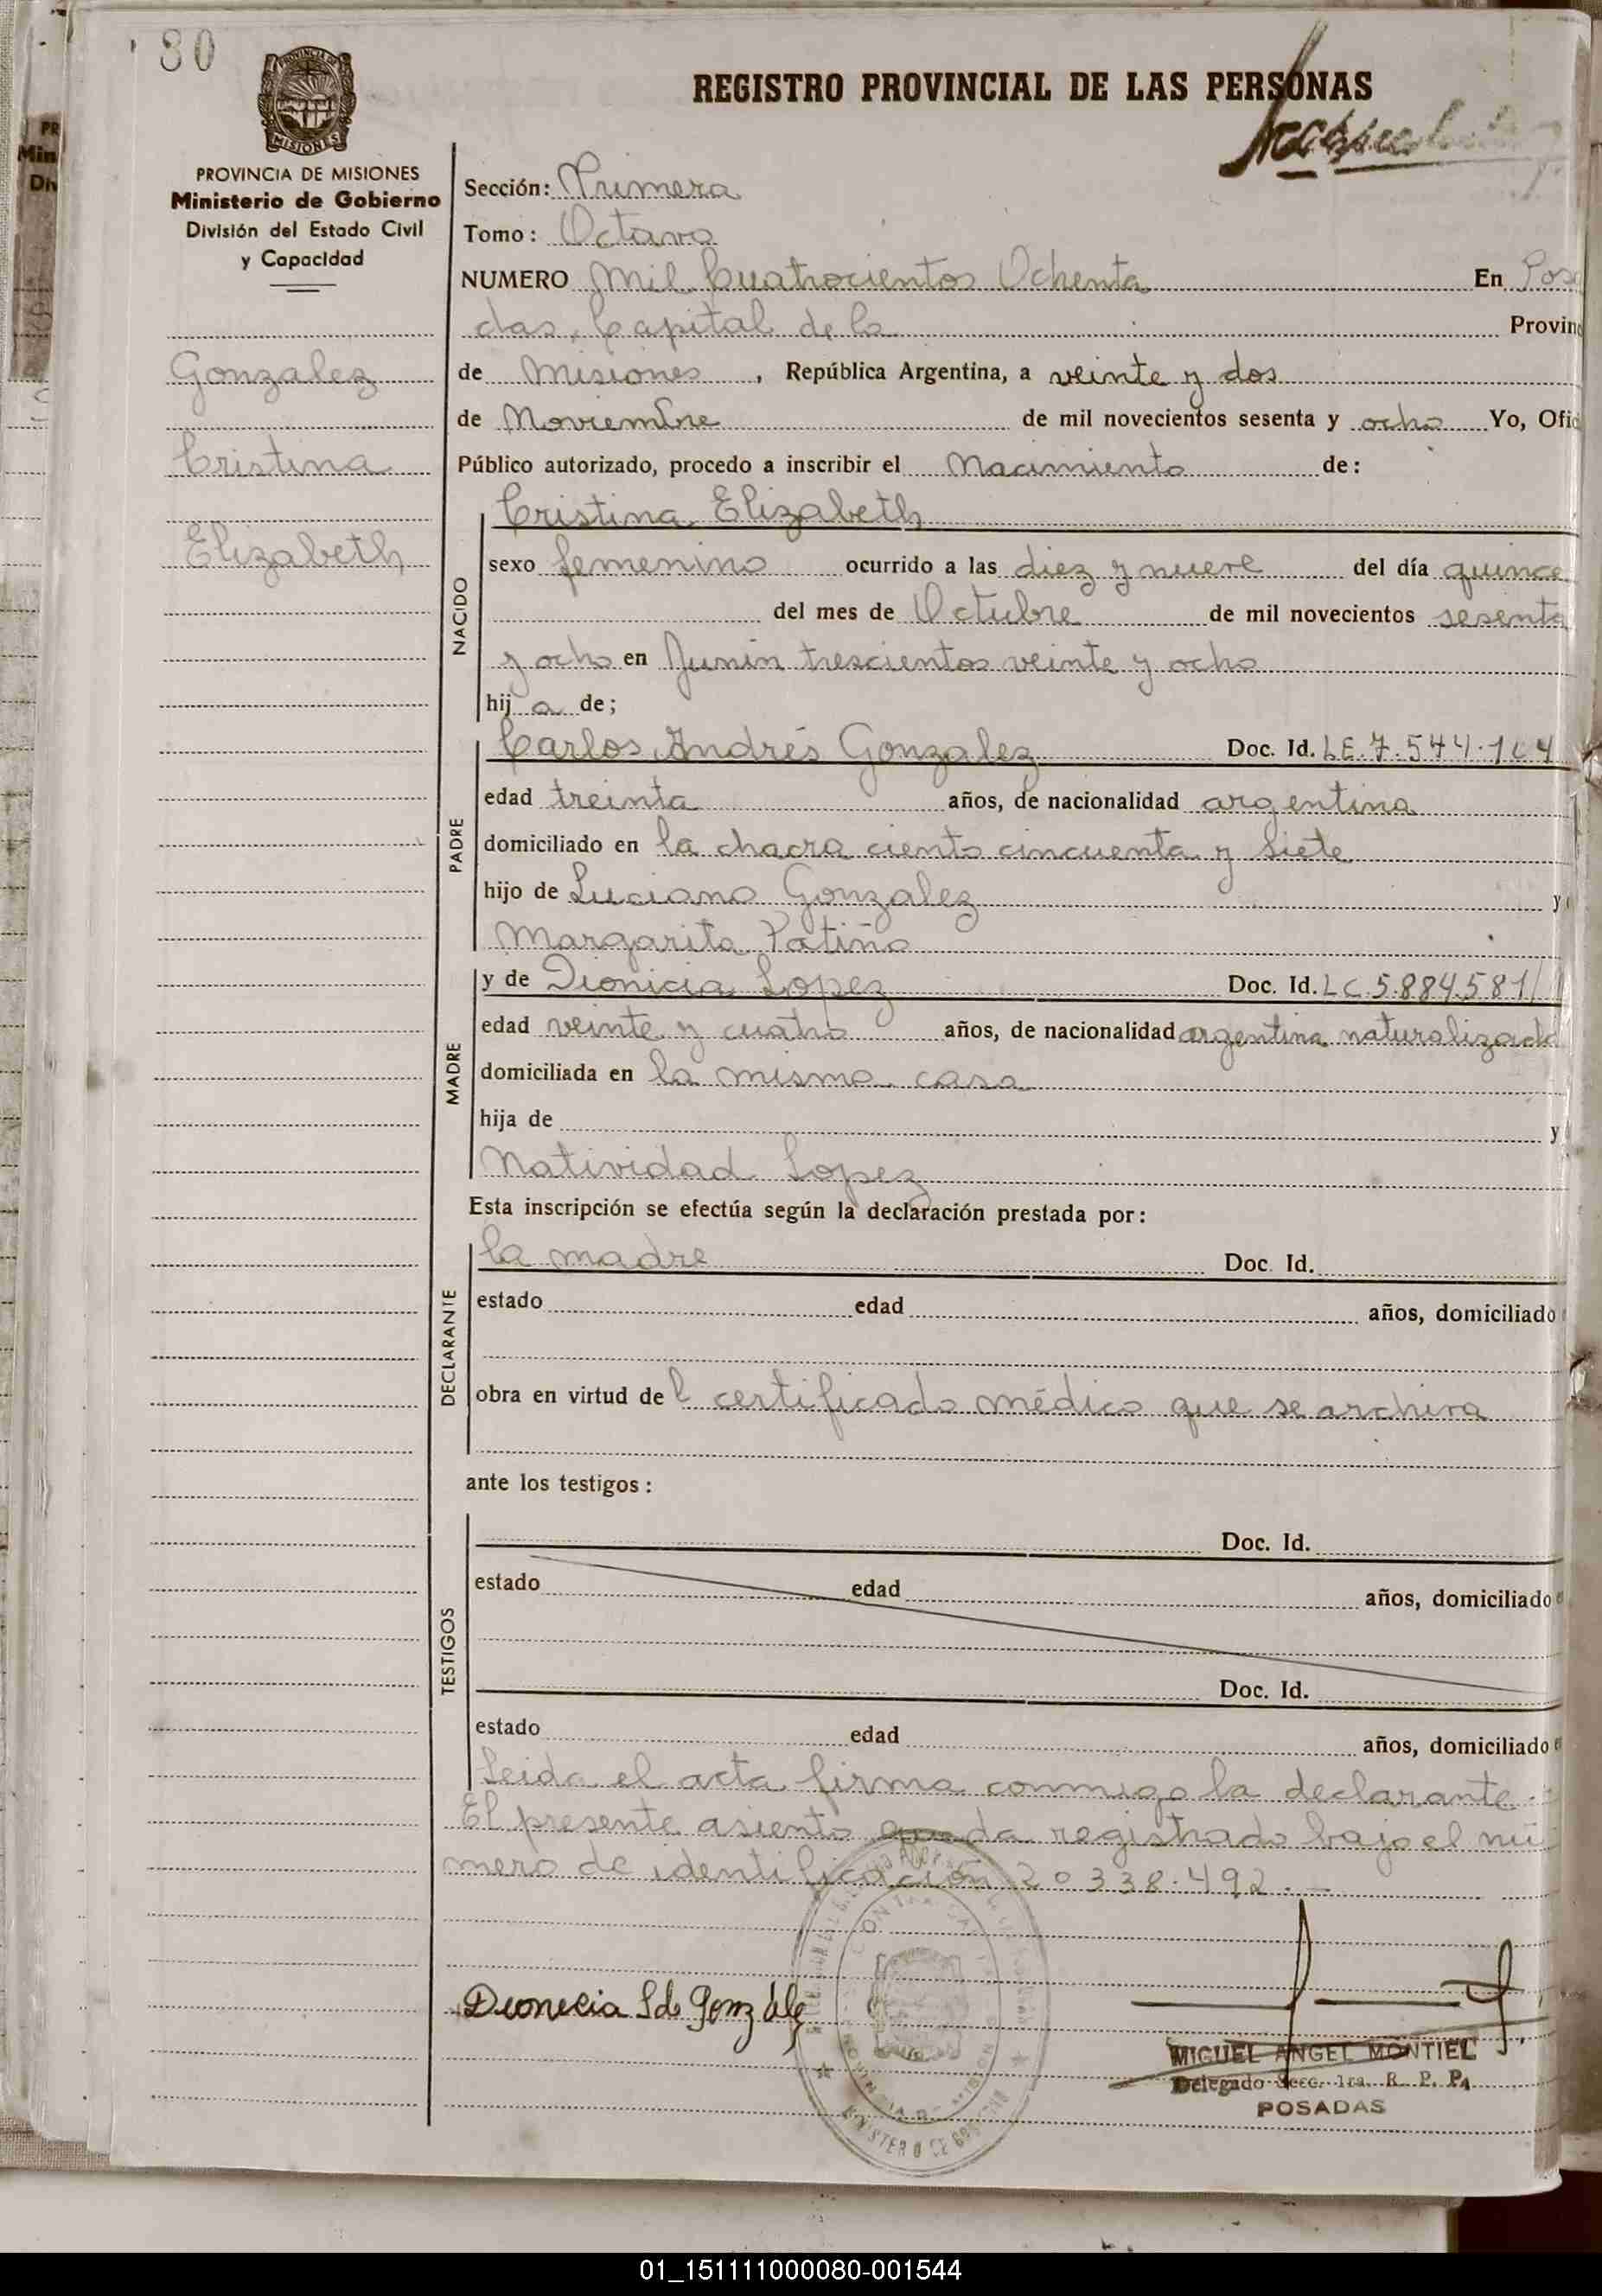 80
REGISTRO PROVINCIAL DE LAS PERSONAS
PROVINCIA DE MISIONES
Ministerio de Gobierno
División del Estado Civil
y Capacidad
Gonzalez
Cristina
Elizabeth
Sección: Primera
Tomo: Octavo
NUMERO Mil Cuatrocientos Ochenta En Posa
das, Capital de la Provinc
de Misiones, República Argentina, a veinte y dos
de Noviembre de mil novecientos sesenta y ocho Yo, Ofic
Público autorizado, procedo a inscribir el Nacimiento de:
NACIDO
Cristina Elizabeth
sexo femenino ocurrido a las diez y nueve del día quince
del mes de Octubre de mil novecientos sesenta
y ocho en Junín trescientos veinte y ocho
hija de;
PADRE
Carlos Andrés Gonzalez Doc. Id. LE.7.544.164
edad treinta años, de nacionalidad argentina
domiciliado en la chacra ciento cincuenta y siete
hijo de Luciano Gonzalez y
Margarita Patiño
MADRE
y de Dionicia Lopez Doc. Id. LC.5.884.581
edad veinte y cuatro años, de nacionalidad argentina naturalizada
domiciliada en la misma casa
hija de y
Natividad Lopez
Esta inscripción se efectúa según la declaración prestada por:
DECLARANTE
la madre Doc. Id.
estado edad años, domiciliado
obra en virtud del certificado médico que se archiva
ante los testigos:
TESTIGOS
Doc. Id.
estado edad años, domiciliado
Doc. Id.
estado edad años, domiciliado
Leida el acta firma conmigo la declarante.
El presente asiento queda registrado bajo el nú
mero de identificación 20338.492.-
Dionicia L de González
MIGUEL ANGEL MONTIEL
Delegado Secc. 1ra. R. P. P.
POSADAS
01_151111000080-001544